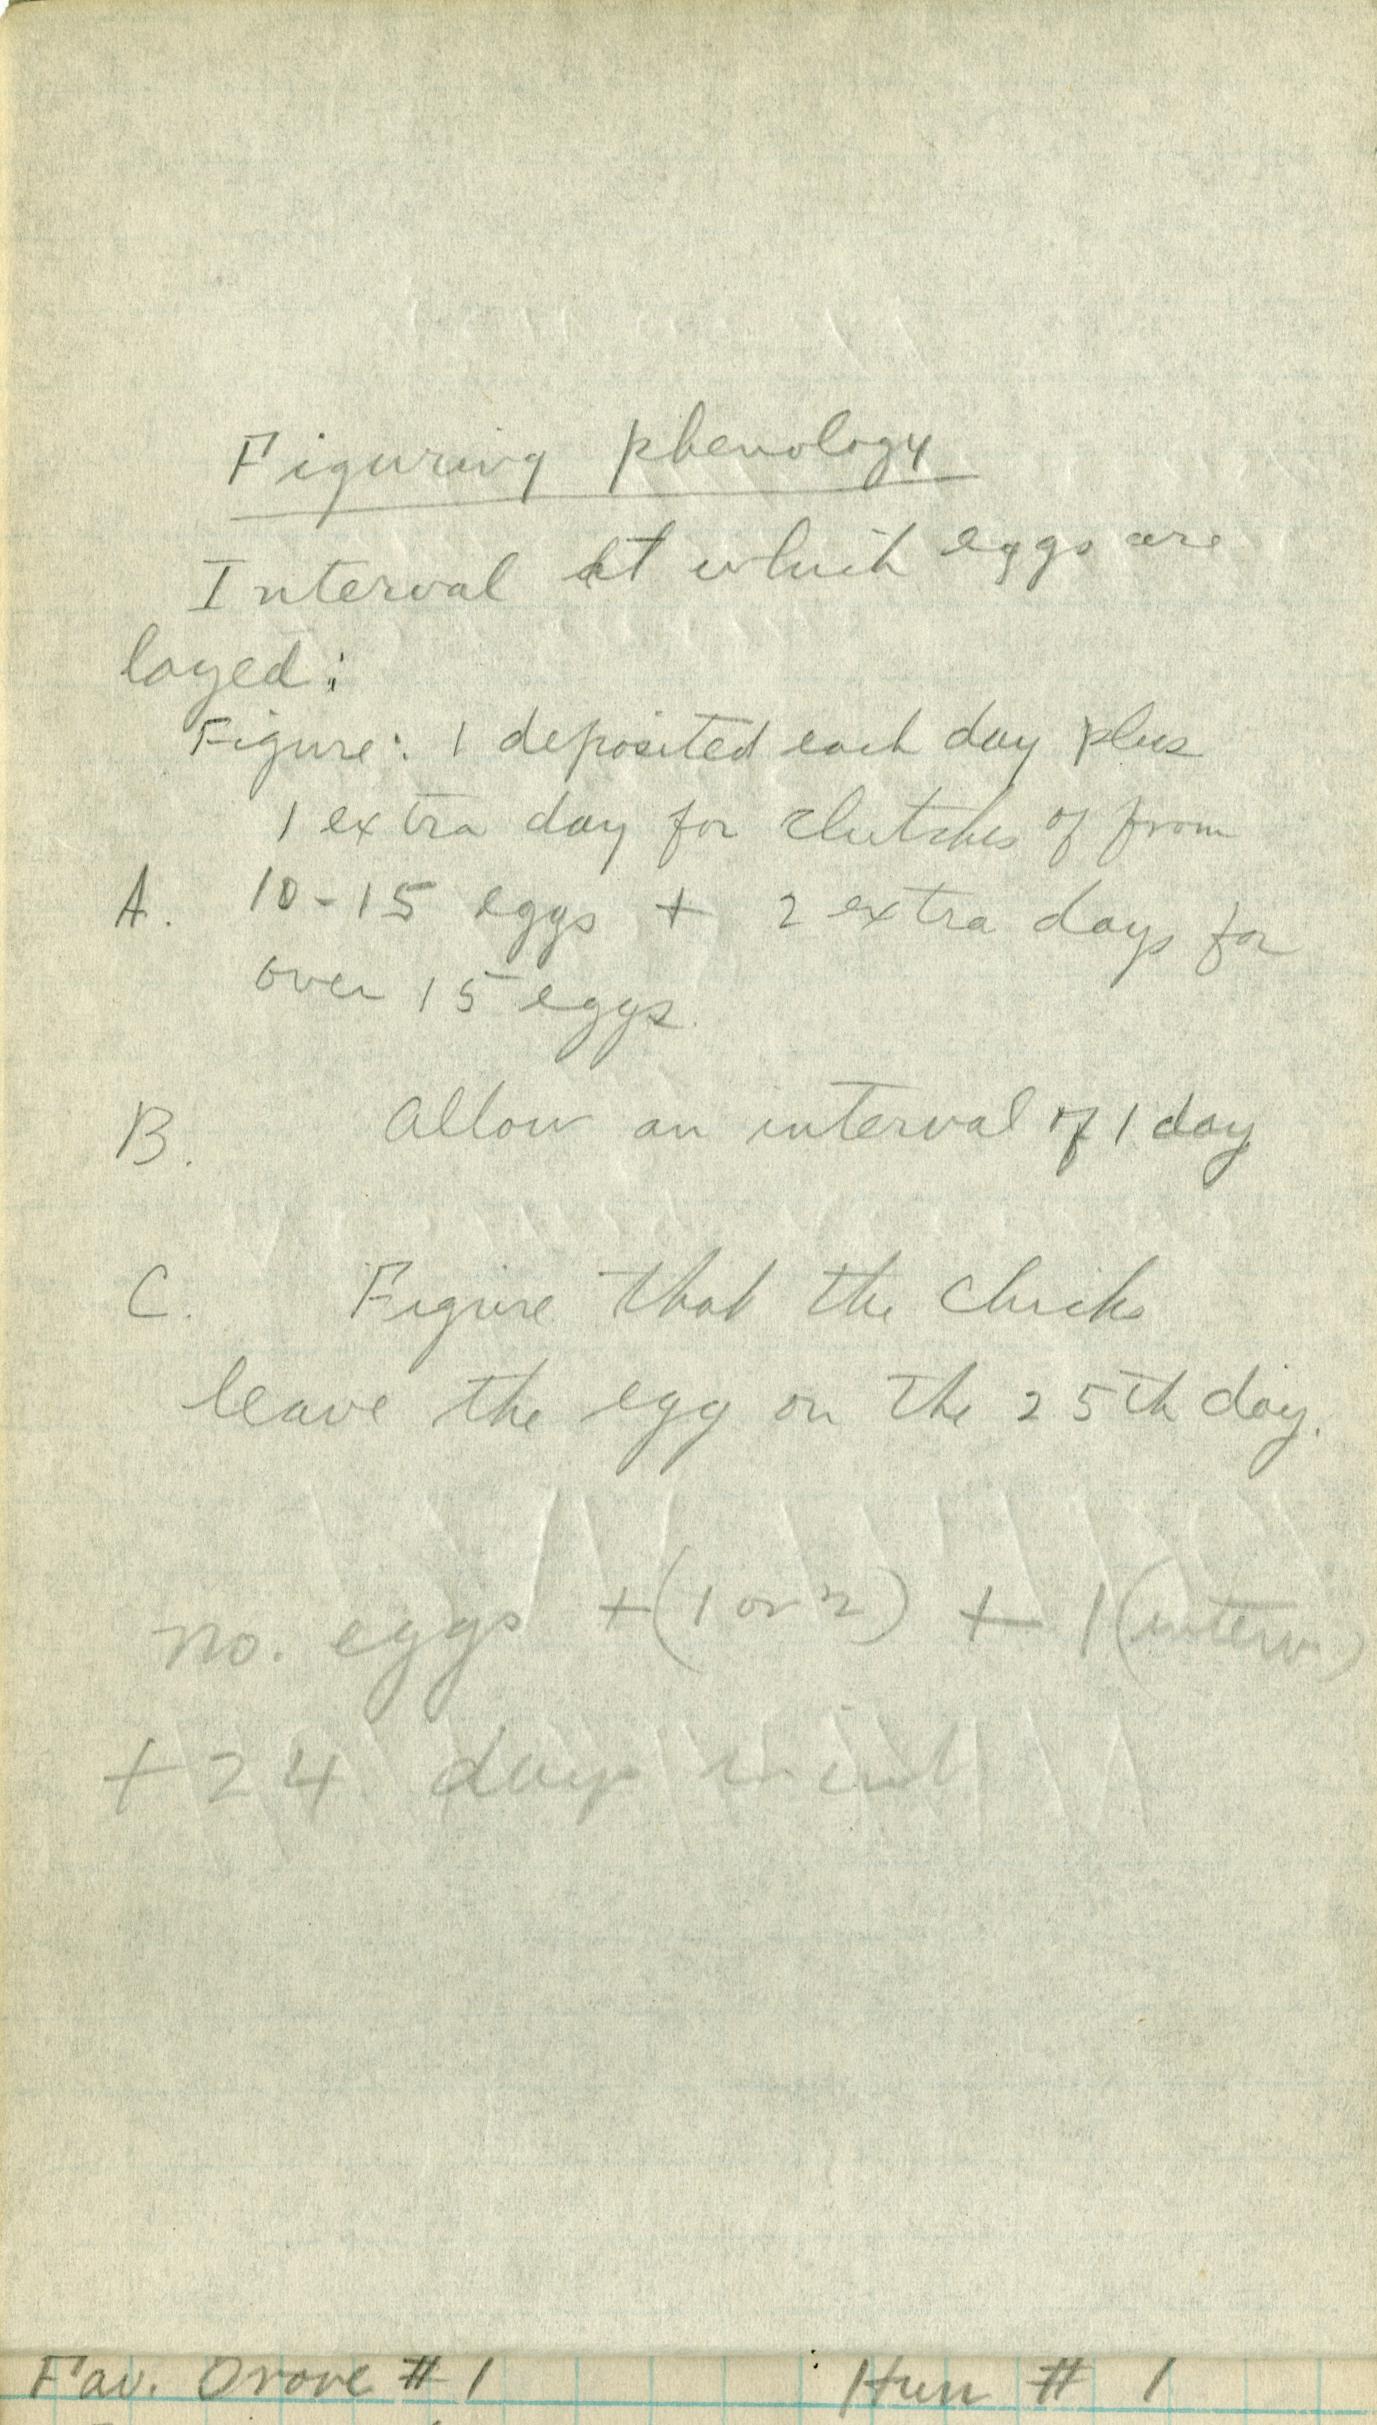 Figuring phenology
Interval at which eggs are
layed:
Figure: 1 deposited each day plus
1 extra day for clutches of from
A. 10-15 eggs + 2 extra days for
over 15 eggs.
B. Allow an interval of 1 day
C. Figure that the chicks
leave the egg on the 25th day.
no. eggs + (1 or 2) + 1 (interv.)
+ 24 days
Fav. Grove # 1 Hun # 1